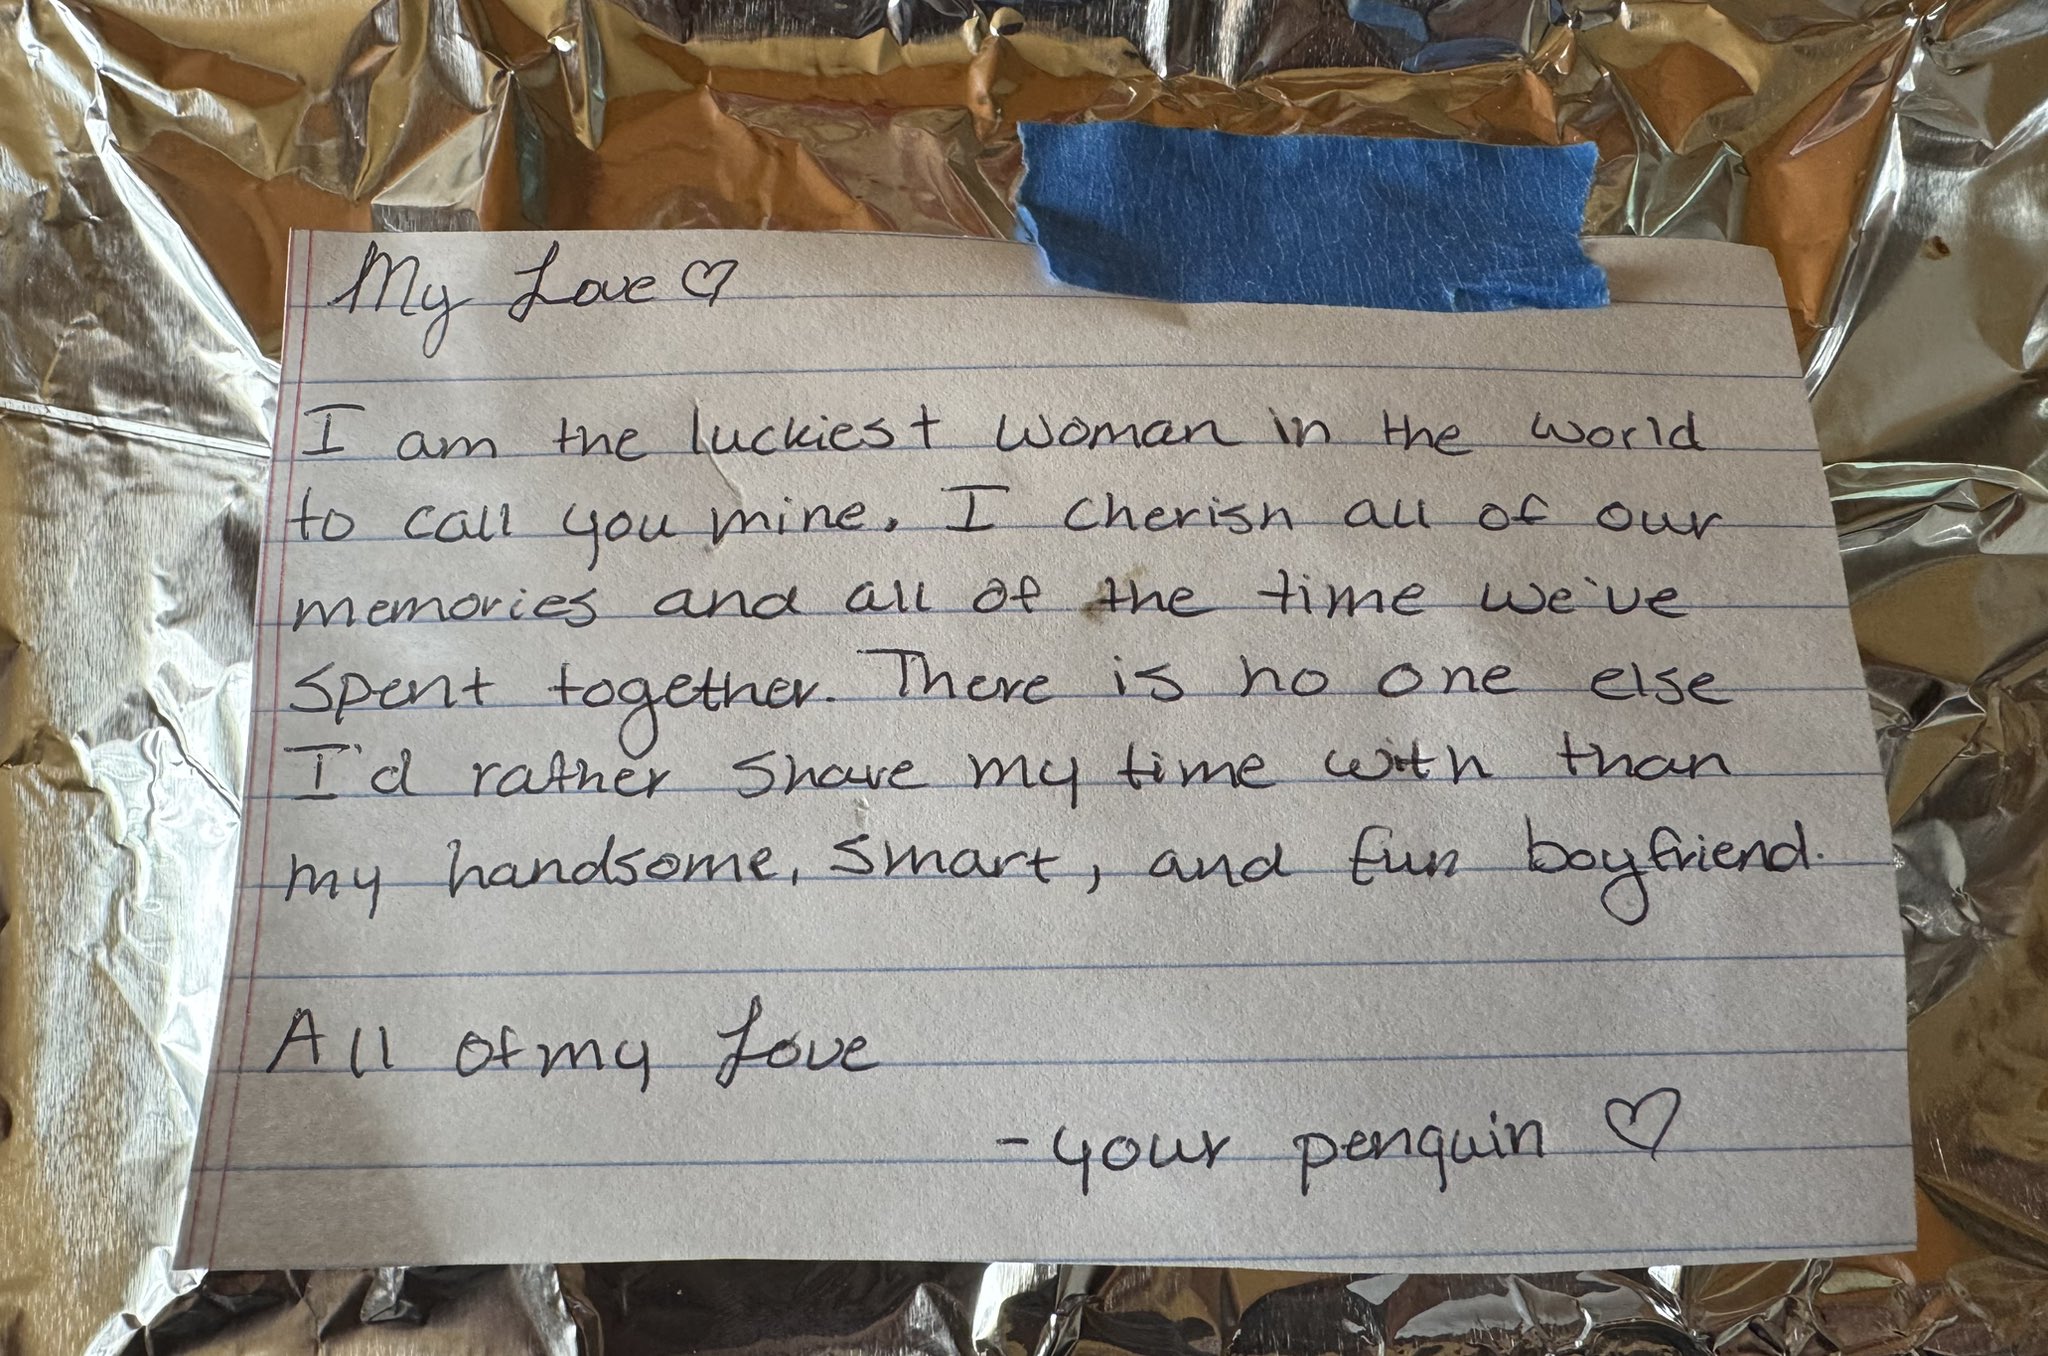 My Love ♡
I am the luckiest woman in the world
to call you mine. I cherish all of our
memories and all of the time we've
spent together. There is no one else
I'd rather share my time with than
my handsome, smart, and fun boyfriend.
All of my Love
- your penguin ♡